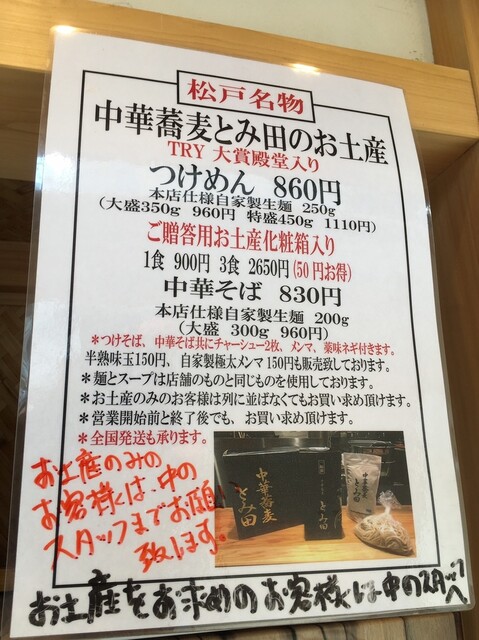 松戸名物
中華蕎麦とみ田のお土産
TRY 大賞殿堂入り
つけめん 860円
本店仕様自家製生麺 250g
(大盛350g 960円 特盛450g 1110円)
ご贈答用お土産化粧箱入り
1食 900円 3食 2650円(50円お得)
中華そば 830円
本店仕様自家製生麺 200g
(大盛 300g 960円)
*つけそば、中華そば共にチャーシュー2枚、メンマ、薬味ネギ付きます。
半熟味玉150円、自家製極太メンマ150円も販売致しております。
*麺とスープは店舗のものと同じものを使用しております。
*お土産のみのお客様は列に並ばなくてもお買い求め頂けます。
*営業開始前と終了後でも、お買い求め頂けます。
*全国発送も承ります。
お土産のみの
お客様は、中の
スタッフまでお願い
致します。
中華蕎麦
とみ田
とみ田
中華蕎麦
とみ田
お土産をお求めのお客様は中のスタッフ
へ